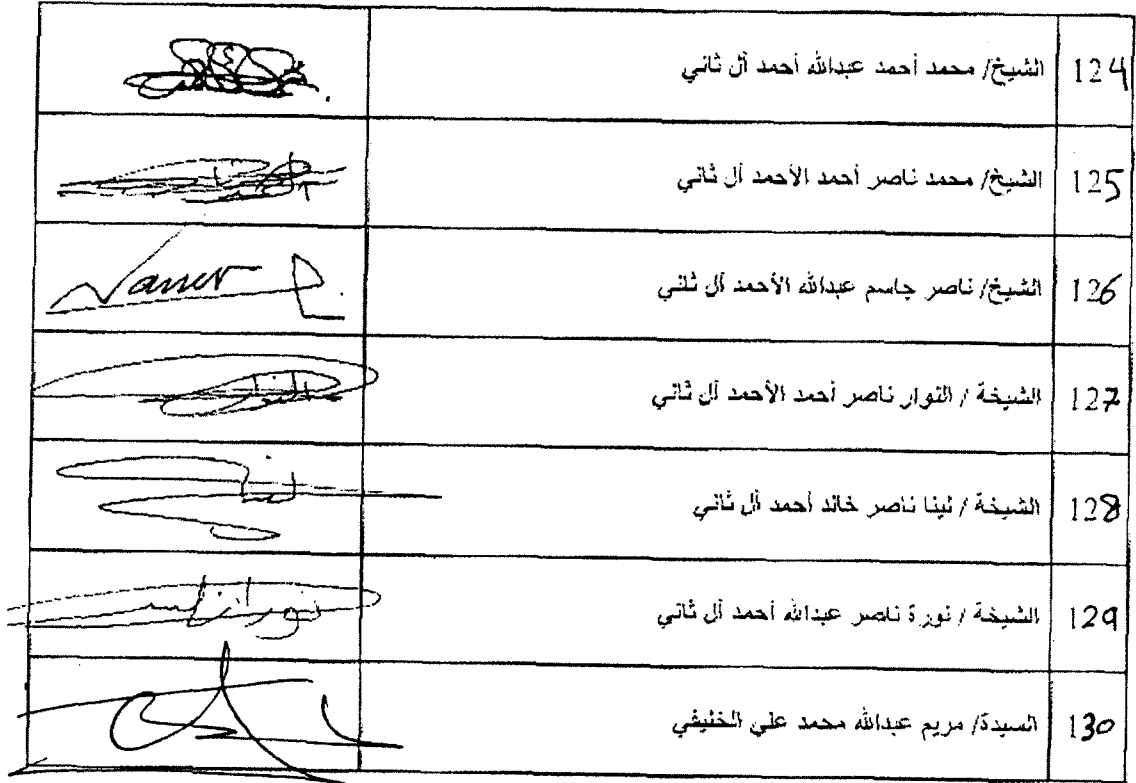 124 الشيخ/ محمد أحمد عبدالله أحمد آل ثاني
125 الشيخ/ محمد ناصر أحمد الأحمد آل ثاني
126 الشيخ/ ناصر جاسم عبدالله الأحمد آل ثاني
127 الشيخة / النوار ناصر أحمد الأحمد آل ثاني
128 الشيخة / لينا ناصر خالد أحمد آل ثاني
129 الشيخة / نورة ناصر عبدالله أحمد آل ثاني
130 السيدة/ مريم عبدالله محمد علي الخليفي